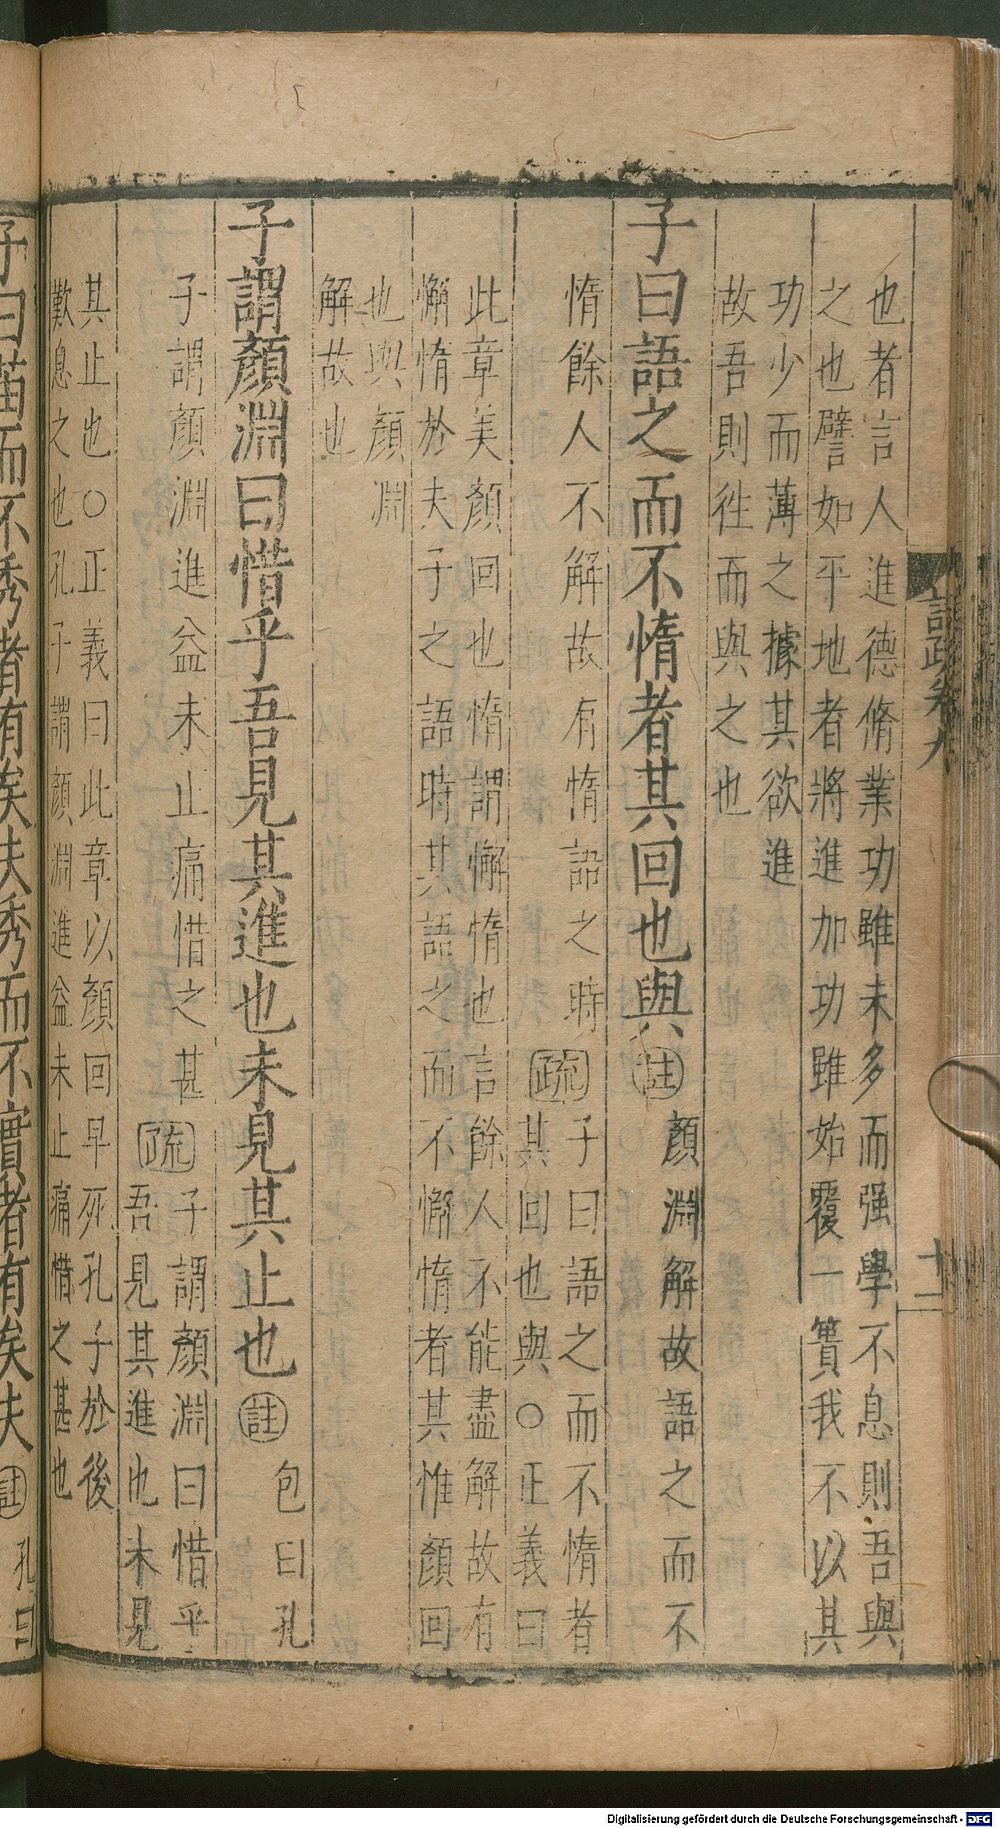 也者言人進德脩業功雖未多而强學不息則吾與
之也譬如平地者將進加功雖始覆一簣我不以其
功少而薄之據其欲進
故吾則徃而與之也
子曰語之而不惰者其回也與
註
顏淵解故語之而不
惰餘人不解故有惰語之時
疏
子曰語之而不惰者
其回也與○正義曰
此章美顏回也惰謂懈惰也言餘人不能盡解故有
懈惰於夫子之語時其語之而不懈惰者其惟顏回
也與顏淵
解故也
子謂顏淵曰惜乎吾見其進也未見其止也
註
包曰孔
子謂顏淵進益未止痛惜之甚
疏
子謂顏淵曰惜乎
吾見其進也未見
其止也○正義曰此章以顏回早死孔子於後
歎息之也孔子謂顏淵進益未止痛惜之甚也
子曰苗而不秀者有矣夫秀而不實者有矣夫
註
孔曰
疏卷九
十一
Digitalisierung gefördert durch die Deutsche Forschungsgemeinschaft - DFG